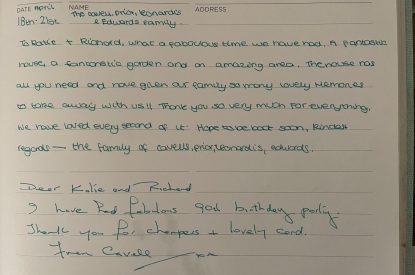 DATE April NAME The cavell, prior, leonardis ADDRESS
18th - 21st & Edwards family.
To Katie + Richard, what a fabocious time we have had. A fantastic
house, a fantanstic garden and an amazing area. The house has
all you need and have given our family so many lovely memories
to take away with us!! Thank you so very much for everything,
we have loved every second of it. Hope to be back soon, kindest
regards — the family of cavells, prior, leonardis, edwards.
Dear Katie and Richard
I have had fabulous 90th birthday party.
Thank you for champers + lovely card.
Fran Cavell xx